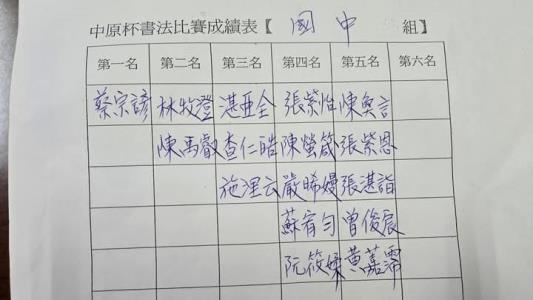 中原杯書法比賽成績表【 國中 組】
第一名 第二名 第三名 第四名 第五名 第六名
蔡宗諺 林牧澄 湛亜全 張紫怡 陳奐言
陳禹叡 查仁皓 陳螢箴 張紫恩
施浬云 嚴晞嫚 張湛詣
蘇宥勻 曾俊宸
阮筱媃 黄嘉霈